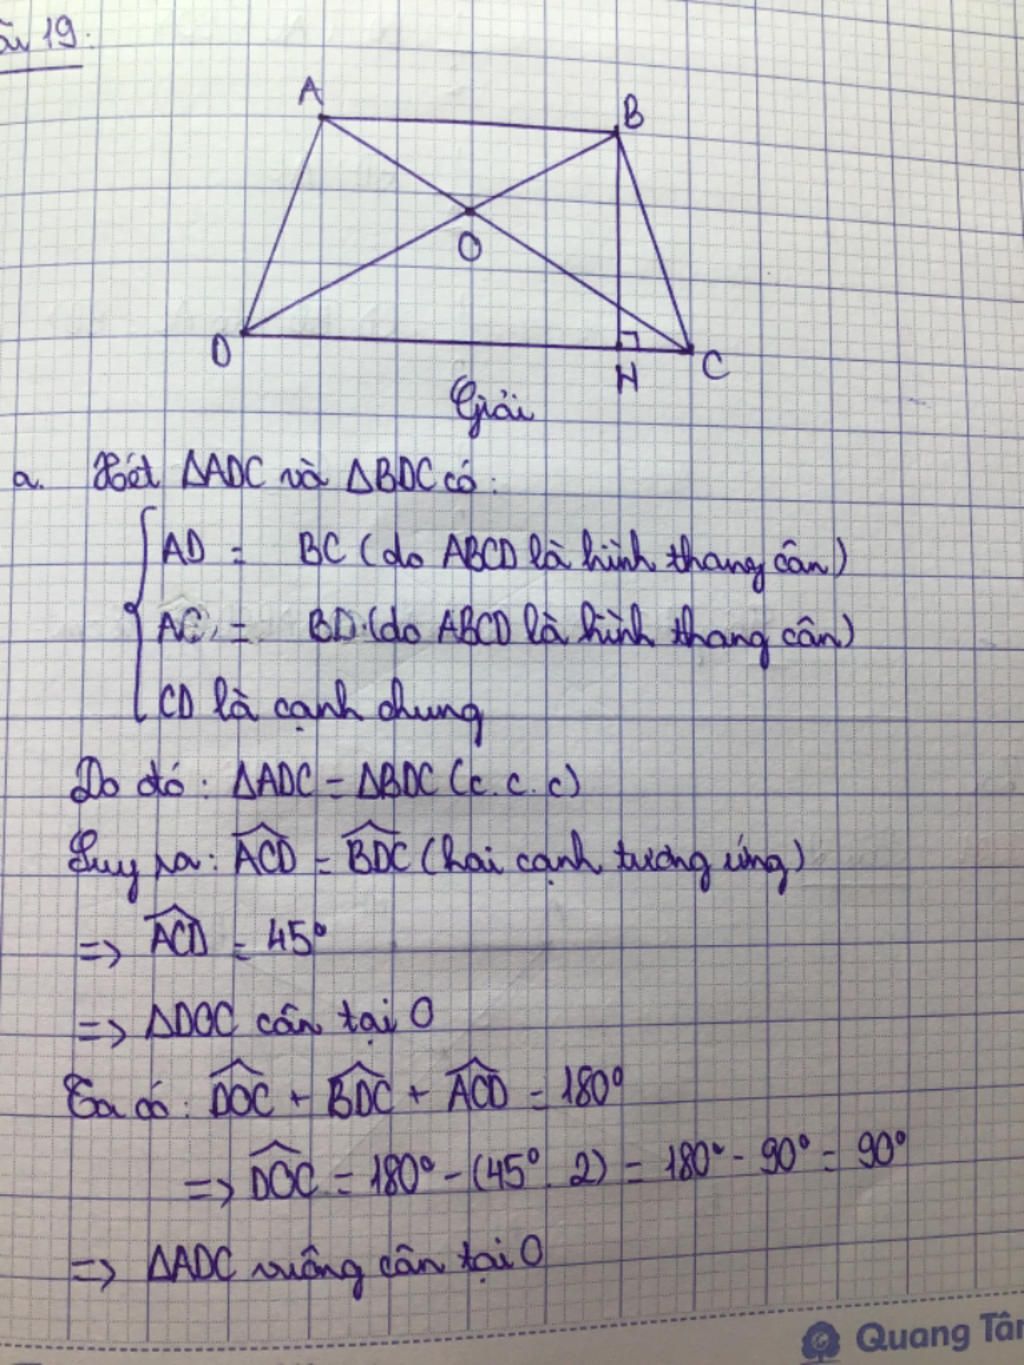 19:
A
B
O
D
H
C
Giải
a. Xét ΔADC và ΔBDC có:
AD = BC (do ABCD là hình thang cân)
AC = BD (do ABCD là hình thang cân)
CD là cạnh chung
Do đó: ΔADC = ΔBDC (c.c.c)
Suy ra: ACD = BDC (hai cạnh tương ứng)
=> ACD = 45°
=> ΔDOC cân tại O
Ta có: DOC + BDC + ACD = 180°
=> DOC = 180° - (45° . 2) = 180° - 90° = 90°
=> ΔADC vuông cân tại O
Quang